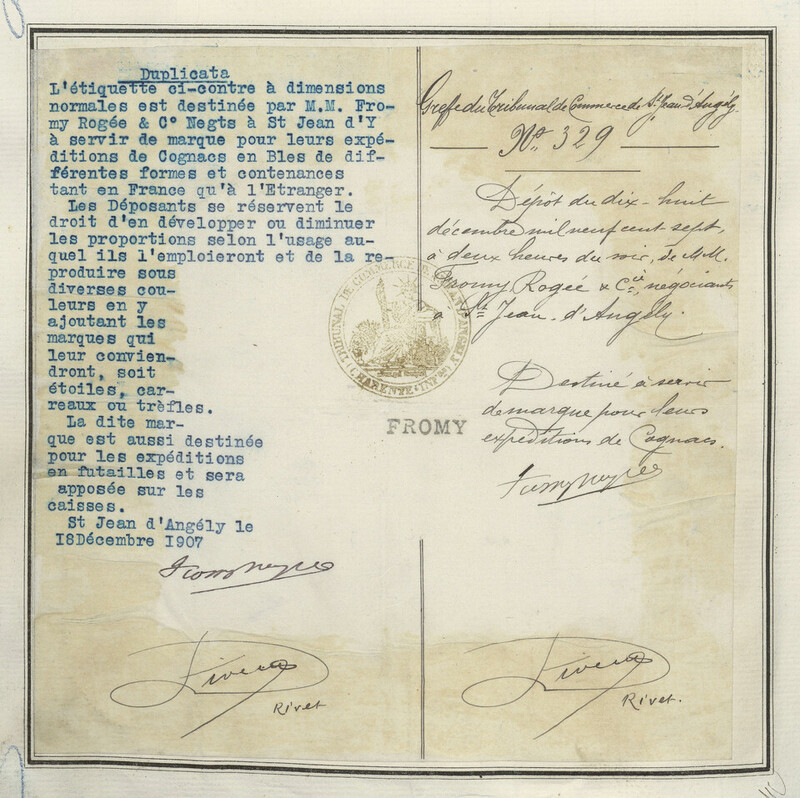 Duplicata
L'étiquette ci-contre à dimensions
normales est destinée par M.M. Fro-
my Rogée & C° Negts à St Jean d'Y
à servir de marque pour leurs expé-
ditions de Cognacs en Bles de dif-
férentes formes et contenances
tant en France qu'à l'Etranger.
Les Déposants se réservent le
droit d'en développer ou diminuer
les proportions selon l'usage au-
quel ils l'emploieront et de la re-
produire sous
diverses cou-
leurs en y
ajoutant les
marques qui
leur convien-
dront, soit
étoiles, car-
reaux ou trèfles.
La dite mar-
que est aussi destinée
pour les expéditions
en futailles et sera
apposée sur les
caisses.
St Jean d'Angély le
18Décembre 1907
Fromy Rogée
Rivet
TRIBUNAL DE COMMERCE DE ST JEAN D'ANGELY
(CHARENTE-INFre)
FROMY
Greffe du Tribunal de Commerce de St Jean d'Angély.
No. 329
Dépôt du dix-huit
décembre mil neuf cent sept,
à deux heures du soir, de MM.
Fromy, Rogée & Cie, négociants
à St Jean-d'Angély.
Destiné à servir
de marque pour leurs
expéditions de Cognacs.
Fromy Rogée
Rivet.